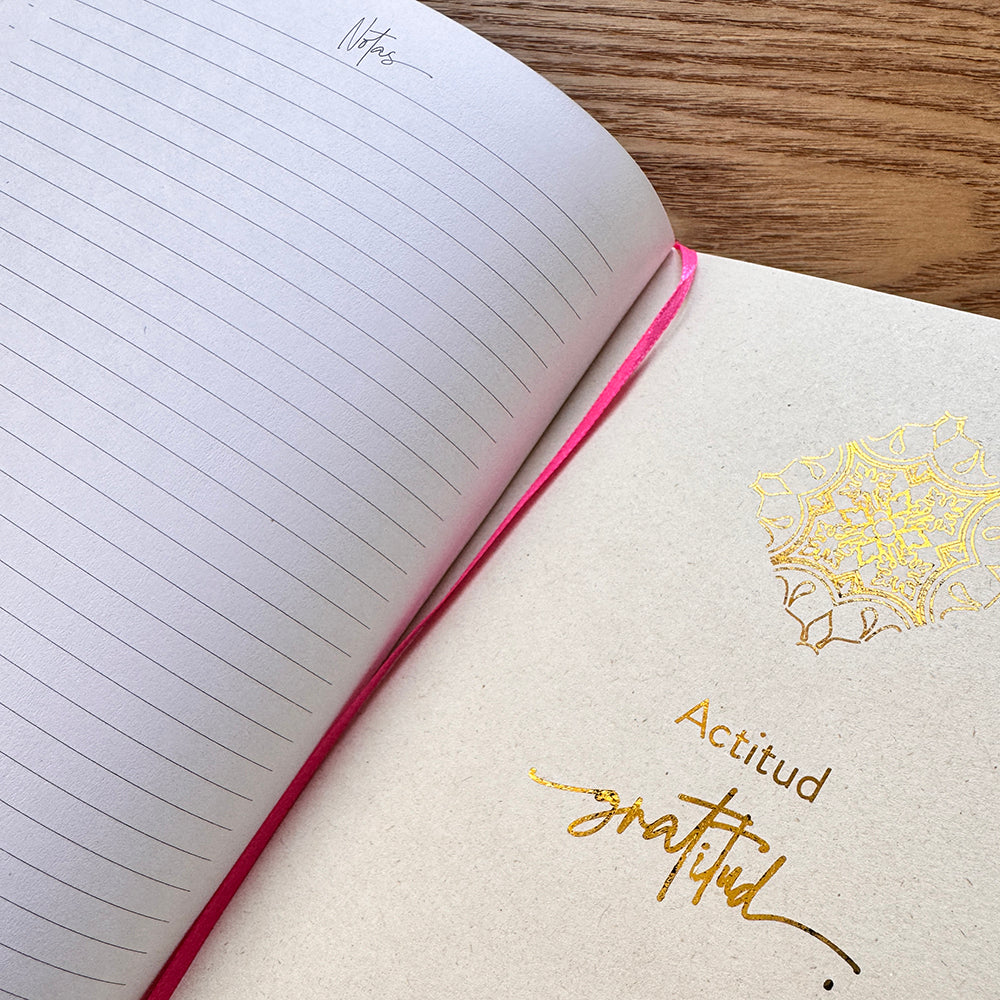 Notas
Actitud
gratitud.